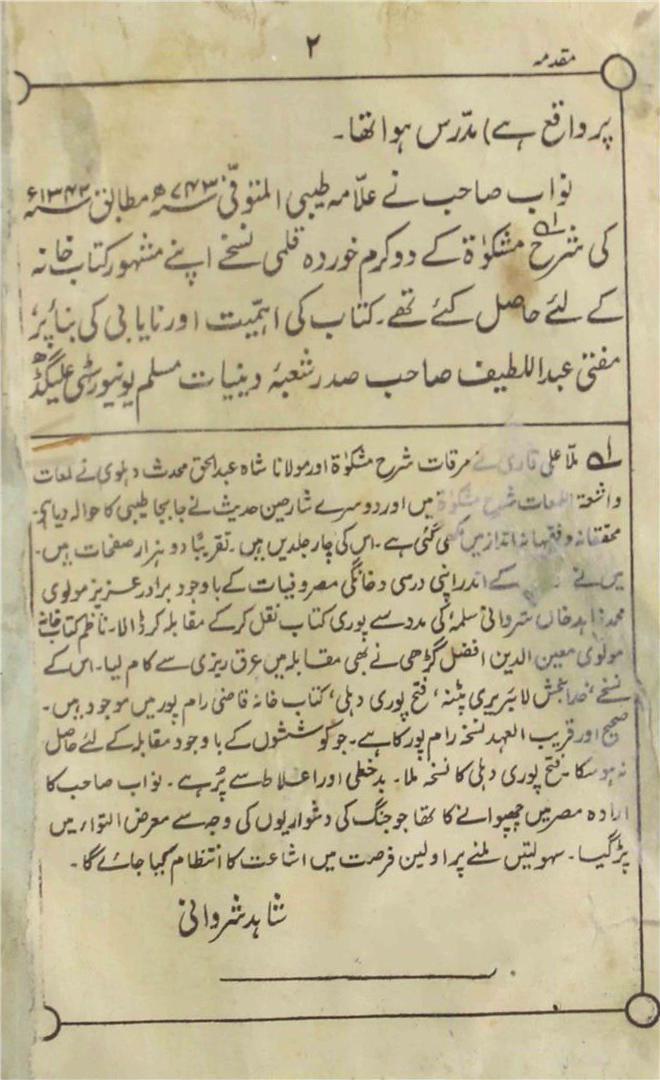 ۲
مقدمہ
پر واقع ہے) مدّرس ہوا تھا۔
نواب صاحب نے علّامہ طیبی المتوفّی ۷۴۳ھ مطابق ۱۳۴۲ء
کی شرح مشکوٰۃ کے دو کرم خوردہ قلمی نسخے اپنے مشہور کتاب خانہ
کے لئے حاصل کئے تھے۔ کتاب کی اہمّیت اور نایابی کی بنأ پر،
مفتی عبداللطیف صاحب صدر شعبۂ دینیات مسلم یونیورسٹی علیگڈھ
لہ ملّا علی قاری نے مرقات شرح مشکوٰۃ اور مولانا شاہ عبدالحق محدث دہلوی نے لمعات
واشعۃ اللمعات شرح مشکوٰۃ میں اور دوسرے شارحین حدیث نے جابجا طیبی کا حوالہ دیا ہے۔
محققانہ وفقیہانہ انداز میں لکھی گئی ہے۔ اس کی چار جلدیں ہیں۔ تقریبًا دو ہزار صفحات ہیں۔
میں نے کے اندر اپنی درسی وخانگی مصروفیات کے باوجود برادر عزیز مولوی
محمد زاہد خاں شروانی سلمہٗ کی مدد سے پوری کتاب نقل کرکے مقابلہ کر ڈالا۔ ناظم کتاب خانہ
مولوی معین الدین افضل گڑھی نے بھی مقابلہ میں عرق ریزی سے کام لیا۔ اس کے
نسخے، خدا بخش لائبریری پٹنہ، فتح پوری دہلی، کتاب خانہ قاضی رام پور میں موجود ہیں۔
صحیح اور قریب العہد نسخہ رام پور کا ہے۔ جو کوششوں کے باوجود مقابلہ کے لئے حاصل
نہ ہو سکا۔ فتح پوری دہلی کا نسخہ ملا۔ بدخطی اور اغلاط سے پُر ہے۔ نواب صاحب کا
ارادہ مصر میں چھپوانے کا تھا جو جنگ کی دشواریوں کی وجہ سے معرض التواء میں
پڑ گیا۔ سہولتیں ملنے پر اولین فرصت میں اشاعت کا انتظام کیا جائے گا۔
شاہد شروانی